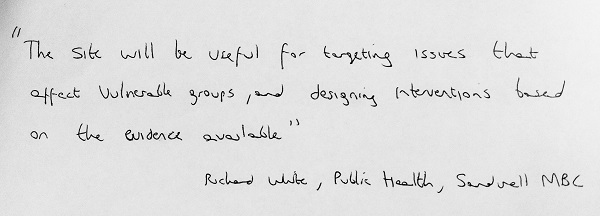 "The site will be useful for targeting issues that
affect vulnerable groups, and designing interventions based
on the evidence available"
Richard White, Public Health, Sandwell MBC